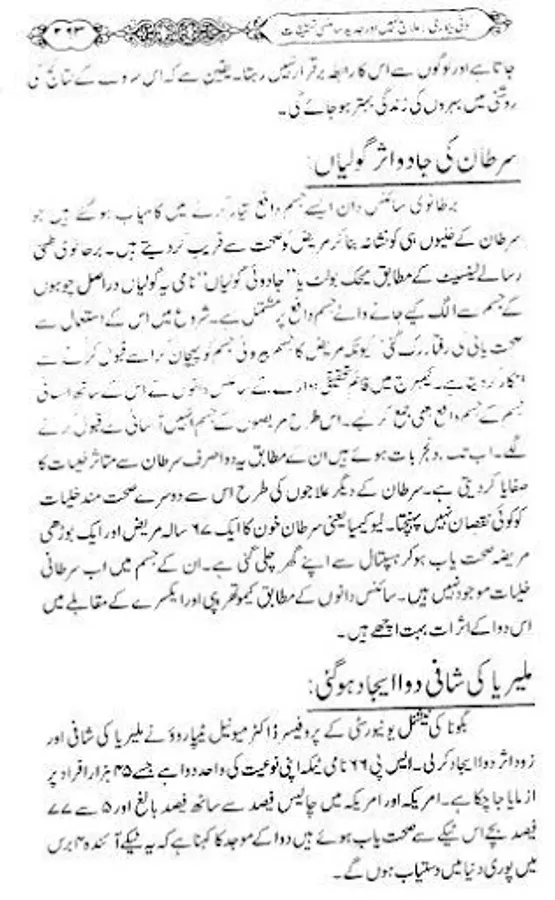 ۲۶۳
کوئی بیماری لا علاج نہیں اور جدید سائنسی تحقیقات
جاتا ہے اور لوگوں سے اس کا رابطہ برقرار نہیں رہتا۔ یقین ہے کہ اس سروے کے نتائج کی
روشنی میں بہروں کی زندگی بہتر ہو جائے گی۔
سرطان کی جادو اثر گولیاں:
برطانوی سائنس دان ایسے جسم دافع تیار کرنے میں کامیاب ہو گئے ہیں جو
سرطان کے خلیوں ہی کو نشانہ بنا کر مریض کو صحت سے قریب کر دیتے ہیں۔ برطانوی طبی
رسالے لینسیٹ کے مطابق میجک بولٹ یا "جادوئی گولیاں" نامی یہ گولیاں دراصل چوہوں
کے جسم سے الگ کیے جانے والے جسم دافع پر مشتمل ہے۔ شروع میں اس کے استعمال سے
صحت یابی کی رفتار رک گئی کیونکہ مریض کا جسم بیرونی جسم کو پہچان کر اسے قبول کرنے سے
انکار کر دیتا ہے۔ کیمبرج میں قائم تحقیقی ادارے کے سائنس دانوں نے اس کے ساتھ انسانی
جسم کے جسم دافع بھی جمع کر لیے۔ اس طرح مریضوں کے جسم انہیں آسانی سے قبول کرنے
لگے۔ اب تک جو تجربات ہوئے ہیں ان کے مطابق یہ دوا صرف سرطان سے متاثر خلیات کا
صفایا کر دیتی ہے۔ سرطان کے دیگر علاجوں کی طرح اس سے دوسرے صحت مند خلیات
کو کوئی نقصان نہیں پہنچتا۔ لیوکیمیا یعنی سرطان خون کا ایک ۶۷ سالہ مریض اور ایک بوڑھی
مریضہ صحت یاب ہو کر ہسپتال سے اپنے گھر چلی گئی ہے۔ ان کے جسم میں اب سرطانی
خلیات موجود نہیں ہیں۔ سائنس دانوں کے مطابق کیموتھرپی اور ایکسرے کے مقابلے میں
اس دوا کے اثرات بہت اچھے ہیں۔
ملیریا کی شافی دوا ایجاد ہو گئی:
بگوٹا کی نیشنل یونیورسٹی کے پروفیسر ڈاکٹر میونیل نے ملیریا کی شافی اور
زود اثر دوا ایجاد کر لی۔ ایس پی ۶۶ نامی ٹیکہ اپنی نوعیت کی واحد دوا ہے جسے ۴۵ ہزار افراد پر
آزمایا جا چکا ہے۔ امریکہ اور امریکہ میں چالیس فیصد سے ساٹھ فیصد بالغ اور ۵ سے ۷۷
فیصد بچے اس ٹیکے سے صحت یاب ہوئے ہیں دوا کے موجد کا کہنا ہے کہ یہ ٹیکے آئندہ ۴ برس
میں پوری دنیا میں دستیاب ہوں گے۔